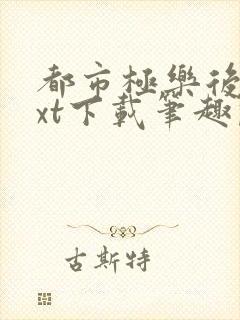 都市極樂後
xt下載筆趣
古斯特